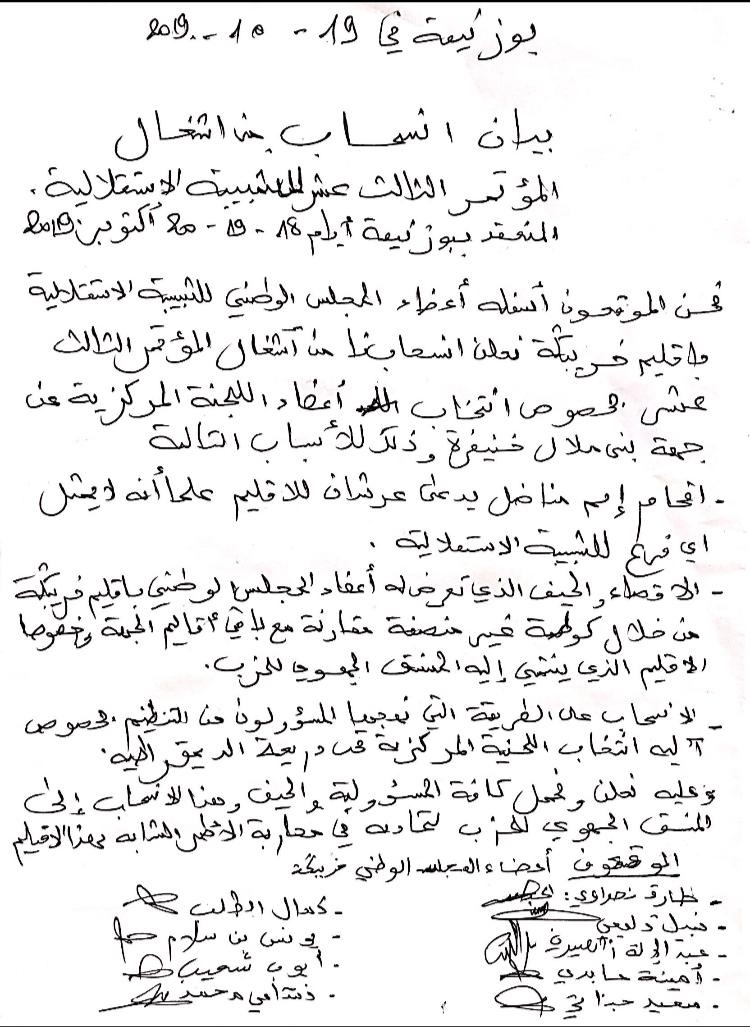 بوزنيقة في 19 - 10 - 2019
بيان انسحاب من اشغال
المؤتمر الثالث عشر للشبيبة الاستقلالية.
المنعقد ببوزنيقة أيام 18 - 19 - 20 أكتوبر 2019
نحن الموقعون أسفله أعضاء المجلس الوطني للشبيبة الاستقلالية
باقليم خريبكة نعلن انسحابنا من أشغال المؤتمر الثالث
عشر بخصوص انتخاب أعضاء اللجنة المركزية عن
جهة بني ملال خنيفرة وذلك للأسباب التالية
- اقحام إسم مناضل يدعى عرشان للاقليم علما أنه لا يمثل
اي فرع للشبيبة الاستقلالية.
- الاقصاء والحيف الذي تعرض له أعضاء المجلس الوطني باقليم خريبكة
من خلال كوطة غير منصفة مقارنة مع باقي أقاليم الجهة وخصوصا
الاقليم الذي ينتمي إليه المنسق الجهوي للحزب.
- الانسحاب على الطريقة التي المسؤولون عن التنظيم بخصوص
آلية انتخاب اللجنة المركزية تحت دريعة الديمقراطية.
وعليه نعلن ونحمل كافة المسؤولية والحيف وهذا الانسحاب إلى
المنسق الجهوي للحزب لتماديه في محاربة الأطر الشابة بهذا الاقليم
الموقعون أعضاء المجلس الوطني خريبكة
- طارق نصراوي:
- نبيل
- عبد الإله
- أمينة عابدي
- سعيد
- كمال الطالب
- يونس بن سلام
- أيوب شعيب
- محمد